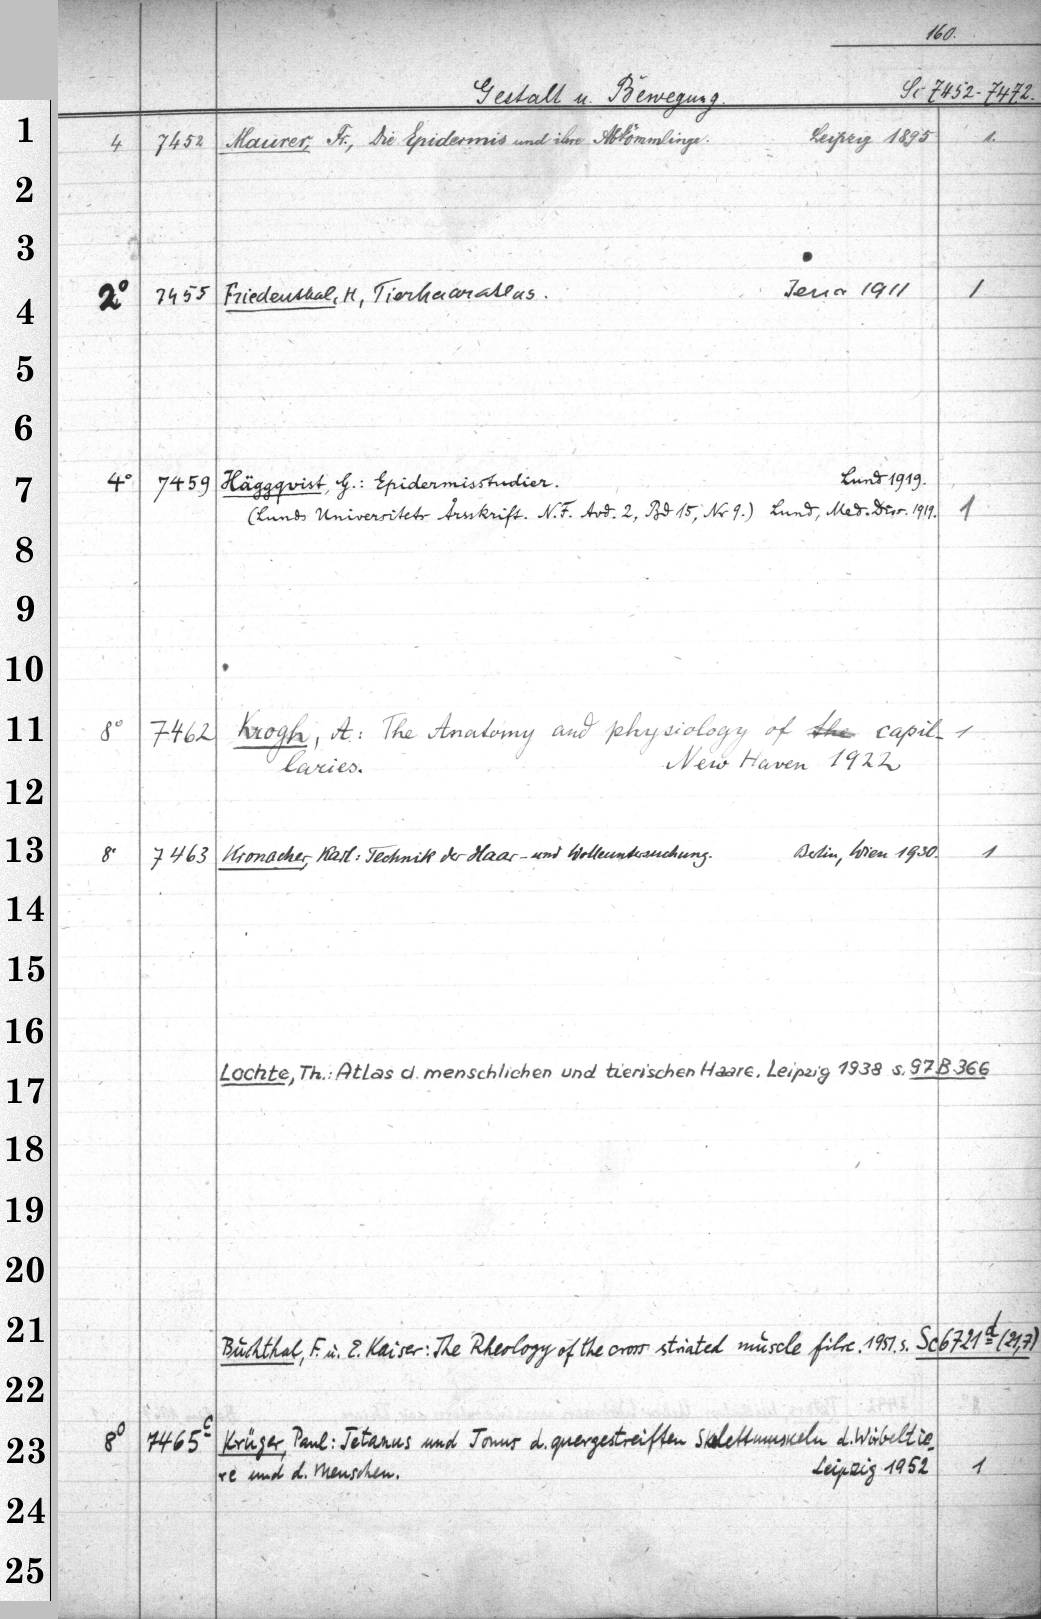 160.
Gestalt u. Bewegung. Sc 7452-7472.
1 4 7452 Maurer, Fr., Die Epidermis und ihre Abkömmlinge. Leipzig 1895 1.
2
3
4 2° 7455 Friedenthal, H, Tierhaaratlas. Jena 1911 1
5
6
7 4° 7459 Häggqvist, G.: Epidermisstudier. Lund 1919.
(Lunds Universitets Årsskrift. N.F. Avd. 2, Bd 15, Nr 9.) Lund, Med. Diss. 1919. 1
8
9
10
11 8° 7462 Krogh, A: The Anatomy and physiology of the capil- 1
laries. New Haven 1922
12
13 8° 7463 Kronacher, Karl: Technik der Haar- und Wolleuntersuchung. Berlin, Wien 1930. 1
14
15
16
17 Lochte, Th.: Atlas d. menschlichen und tierischen Haare. Leipzig 1938 s. 97 B 366
18
19
20
21 Buchthal, F. u. E. Kaiser: The Rheology of the cross striated muscle fibre. 1951. s. Sc 6721d (21,7)
22
23 8° 7465c Krüger, Paul: Tetanus und Tonus d. quergestreiften Skelettmuskeln d. Wirbeltie-
re und d. Menschen. Leipzig 1952 1
24
25